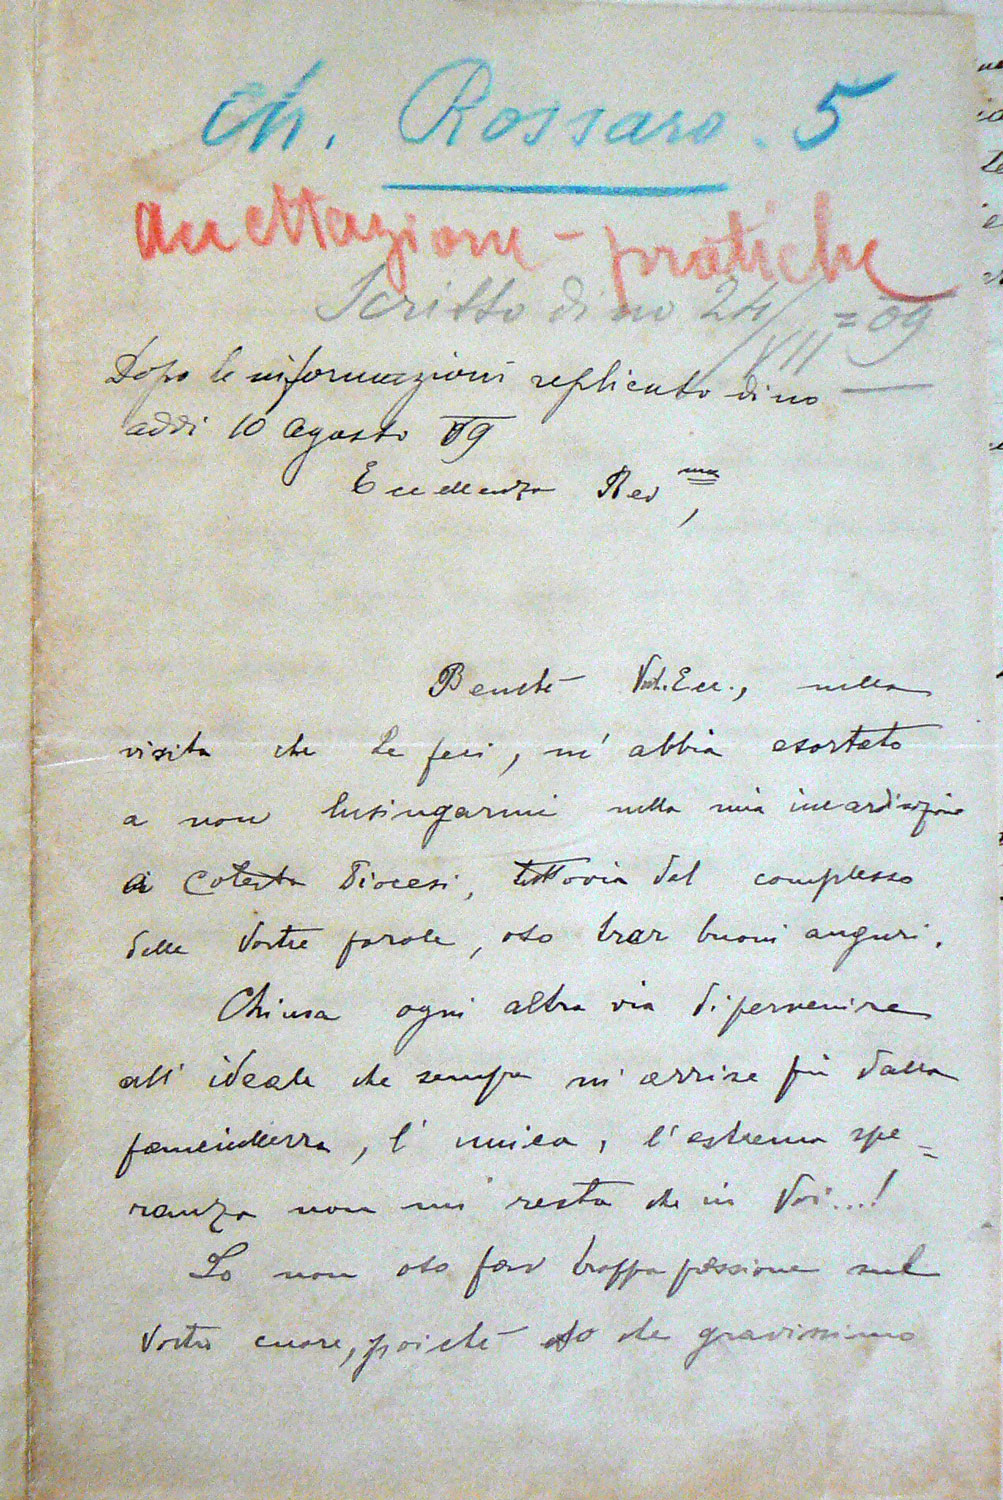 Ch. Rossaro. 5
accettazione - pratiche
Scritto di no 24/VII = 09
Dopo le informazioni replicato di no
addi 10 Agosto 09
Eccellenza Rev ma,
Benchè Vost. Ecc., nella
visita che Le feci, m' abbia esortato
a non lusingarmi nella mia incardinazione
a Cotesta Diocesi, tuttovia dal complesso
delle Vostre parole, oso trar buoni auguri.
Chiusa ogni altra via di pervenire
all' ideale che sempre m' arrise fin dalla
fanciullezza, l' unica, l' estrema spe=
ranza non mi resta che in Voi...!
Io non oso far troppa pressione sul
Vostro cuore, poichè so che gravissimo